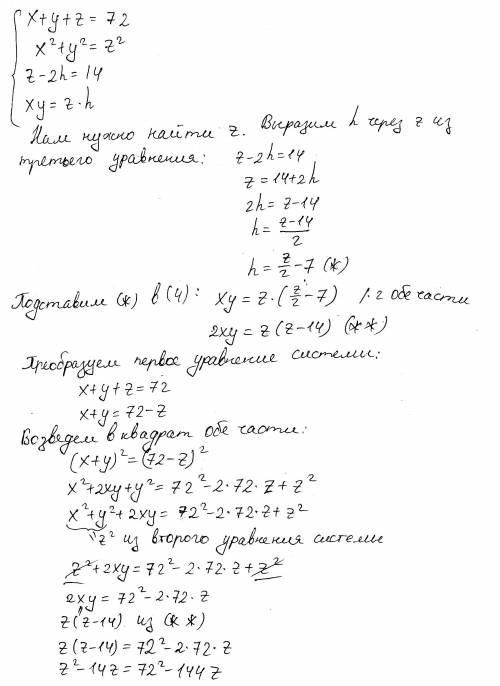 x+y+z=72
x²+y²=z²
z-2h=14
xy=z·h
Нам нужно найти z. Выразим h через z из
третьего уравнения: z-2h=14
z=14+2h
2h=z-14
h=\frac{z-14}{2}
h=\frac{z}{2}-7 (*)
Подставим (*) в (4): xy=z·(\frac{z}{2}-7) /·2 обе части
2xy=z(z-14) (**)
Преобразуем первое уравнение системы:
x+y+z=72
x+y=72-z
Возведем в квадрат обе части:
(x+y)²=(72-z)²
x²+2xy+y²=72²-2·72·z+z²
x²+y²+2xy=72²-2·72·z+z²
"z² из второго уравнения системы
z²+2xy=72²-2·72·z+z²
2xy=72²-2·72·z
z(z-14) из (**)
z(z-14)=72²-2·72·z
z²-14z=72²-144z